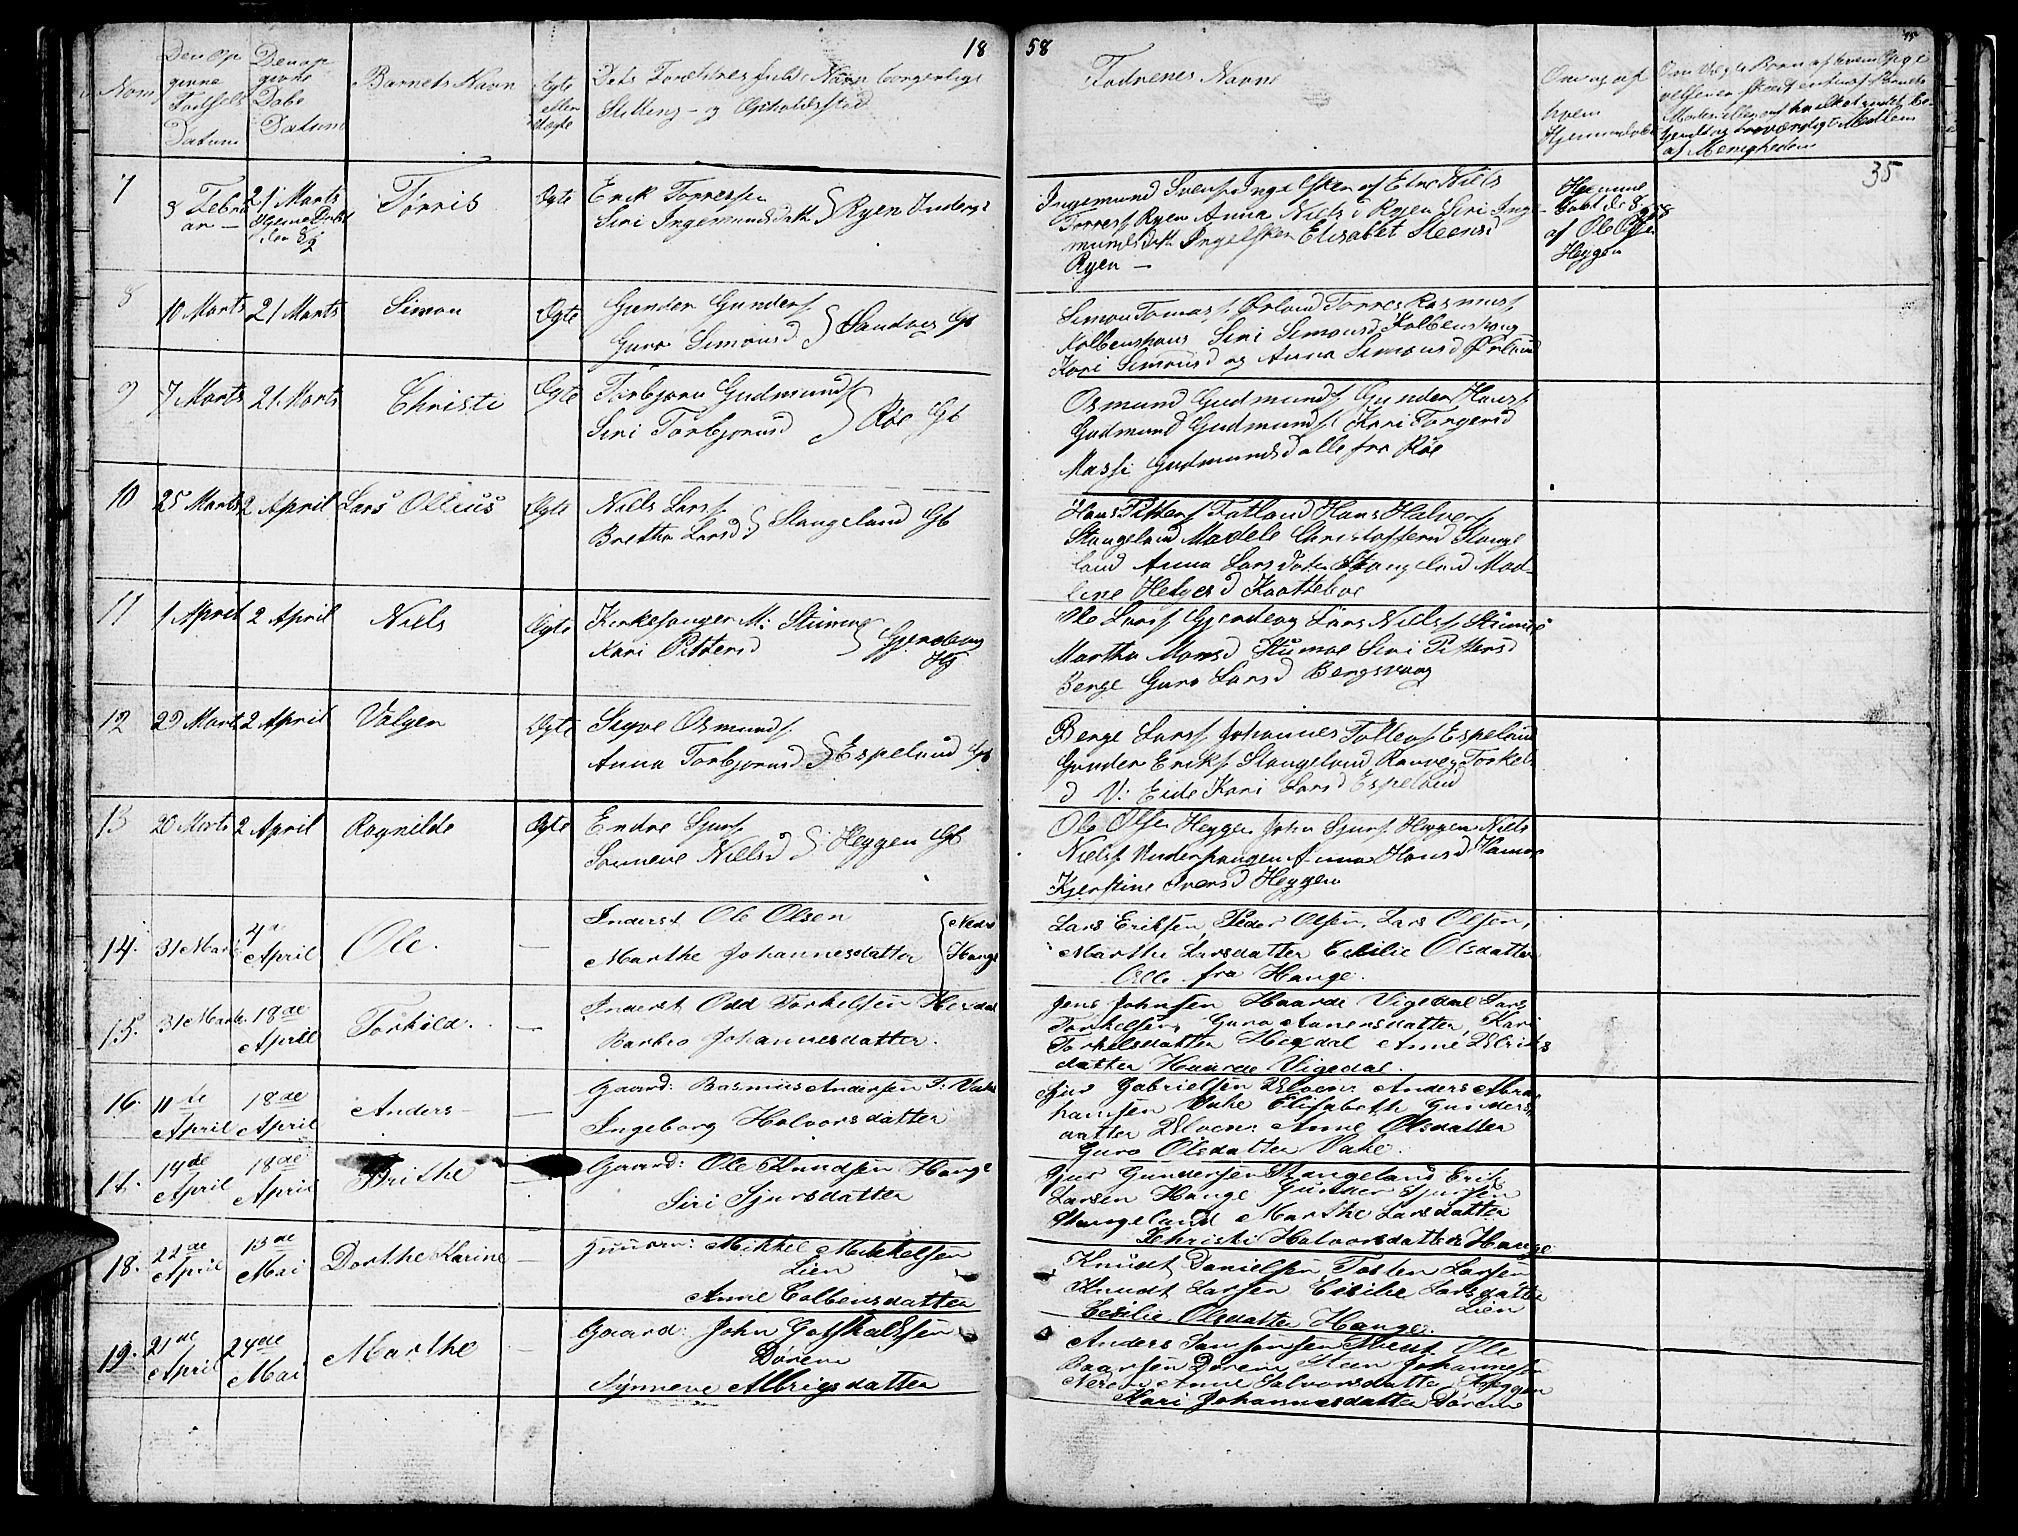 18
58
35
Nom
Den Op
givne
Fødsels
Datum
Den op
givne
Dabe
Datum
Barnets Navn
Ægte
eller
Uægte
Dets Forældres fulde Navn borgerlige
Stilling - og Opholdsstad
Fadrenes Navne
Om og af
hvem
Hjemmedøbt
af Menigheden
7
3 Febru
ar -
21 Marts
Hjeme Døbt
den 8/2
Torris
Ægte
Erik Torressen
Siri Ingemunds datt } Ryen
Ingemund Svens
Torress Ryen Anna Niels d Ryen Siri Inge
munds datt Elisabet Steensd
Ryen -
Hjemme
døbt d: 8
af Ole Olsen
Heggen
8
10 Marts
21 Marts
Simon
Ægte
Gunder Gunders
Guro Simonsd } Sandvig Gb
Simon Tomas Ørland Torres Rasmus
Kolbenshaug Siri Simonsd Kolbenshaug
Kari Simonsd og Anna Simonsd Ørland
9
7 Marts
21 Marts
Christi
Ægte
Torbjørn Gudmunds
Siri Torbjørnsd } Røe Gb
Osmund Gudmunds Gunder Hans
Gudmund Gudmunds Kari Torgersd
Massi Gudmundsd alle fra Røe
10
25 Marts
2 April
Lars Ollius
Ægte
Niels Lars
Brethe Larsd } Stangeland Gb
Hans Pitters Fatland Hans Halvors
Stangeland Madele Christoffersd Stange
land Anna Lars datter Stangeland Mad-
line Helgesd
11
1 April
2 April
Niels
Ægte
Kirkesanger M: Stumoe
Kari Pittersd } Gjerdevaag
Ole Lars Gjerdevag Lars Niels Stumoe
Martha Monsd Stumoe Siri Pittersd
Berge Guro Larsd Bergsvaag
12
29 Marts
2 April
Valger
Ægte
Sigve Osmunds
Anna Torbjørnsd } Espeland Gb
Berge Lars Johannes Tollefs Espeland
Gunder Eriks Stangeland Ranveg Torkels
d V: Eide Kari Larsd Espeland
13
20 Marts
2 April
Ragnilde
Ægte
Endre Sjurs
Sønneve Nielsd } Heggen Gb
Ole Olsen Heggen John Sjurs Heggen Niels
Niels Underhaugen Anna Hansd
Kjerstine Iversd Heggen
14.
31 Marts
4de
April
Ole.
—
Inderst Ole Olsen
Marthe Johannesdatter { Nedre
Hauge
Lars Eriksen, Peder Olsen, Lars Olsen,
Marthe Larsdatter Cecilie Olsdatter
Alle fra Hauge.
15.
31 Marts
18de
April
Torkild.
—
Inderst Odd Torkelsen Hegdal
Barbro Johannesdatter.
Jens Johnsen Haarde Vigedal Lars
Torkelsen, Guro Aanensdatter, Kari
Torkelsdatter Hegdal Anne Ulriks
datter Haarde Vigedal.
16.
11te
April
18de
April
Anders
—
Gaard: Rasmus Andersen I: Vake
Ingeborg Halvorsdatter
Sjur Gabrielsen Ulven: Anders Abra
hamsen Vake Elisabeth Gunders
datter Ulven: Anne Olsdatter
Guro Olsdatter Vake.
17.
14de
April
18de
April
Brithe
—
Gaard: Ole Knudsen Hauge
Siri Sjursdatter
Sjur Gundersen Stangeland Erik
Larsen Hauge Gunder Sjursen
Stangeland Marthe Larsdatter
Christi Halvorsdatter Hauge
18.
22de
April
13de
Mai
Dorthe Karine
—
Mikkel Mikkelsen
Lien
Anne Colbensdatter
Knudt Danielsen, Tosten Larsen
Knudt Larsen Cicilie Larsdatter
Lien
Cecilie Olsdatter Hauge.
19.
21de
April
24de
Mai
Marthe
—
Gaard: John Gotskalksen
Døren
Synneve Albrigsdatter
Anders Ole
Baarsen Døren Steen Johannesen
Anne Halvorsdatter Heggen
Kari Johannesdatter Døren